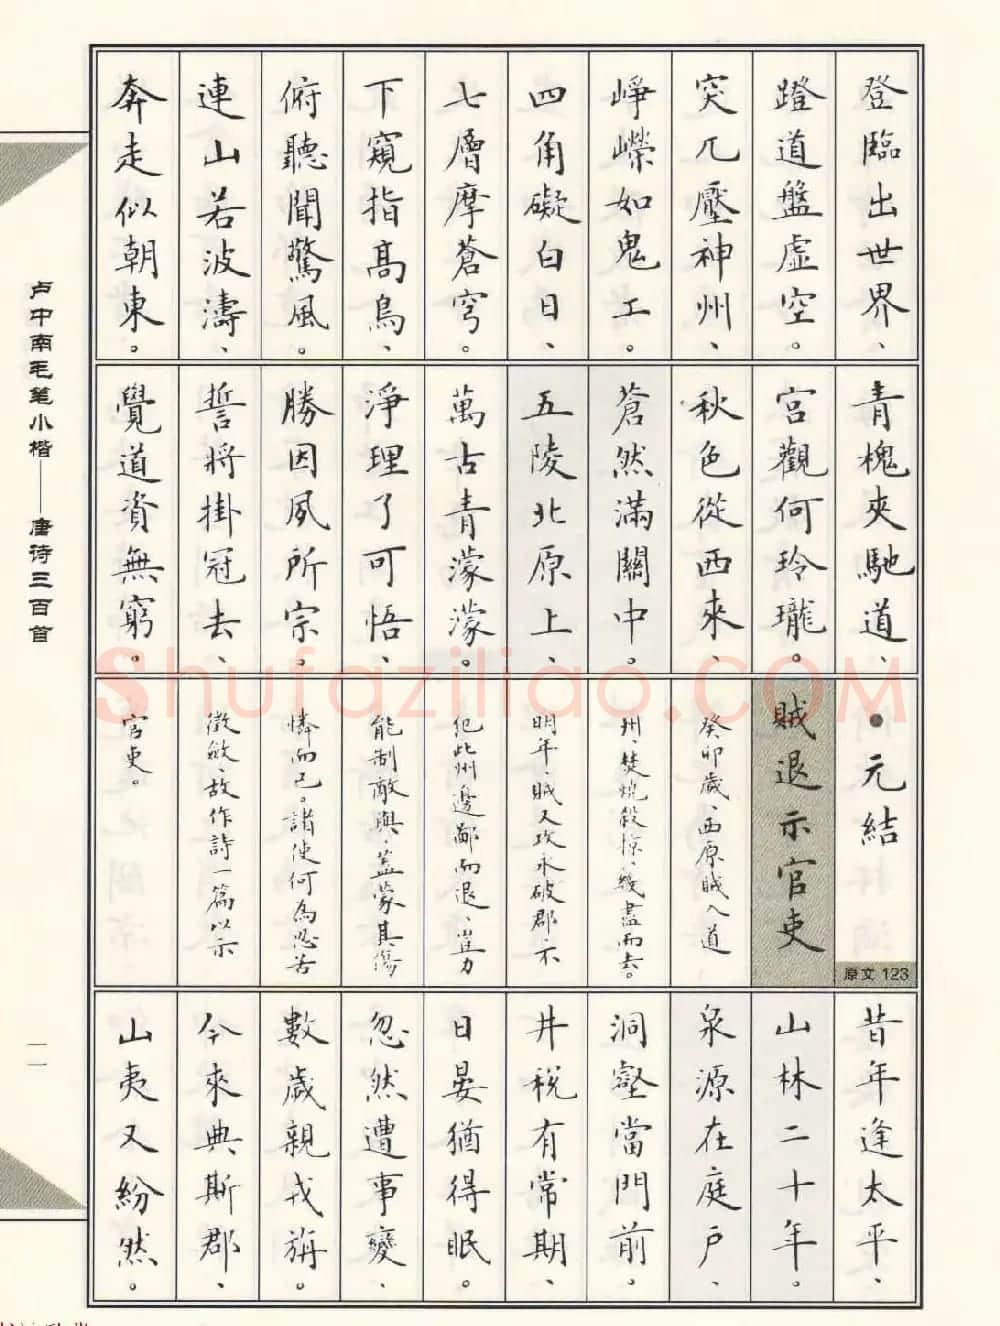 登臨出世界、
蹬道盤虛空。
突兀壓神州、
崢嶸如鬼工。
四角礙白日、
七層摩蒼穹。
下窺指高鳥、
俯聽聞驚風。
連山若波濤、
奔走似朝東。
青槐夾馳道、
宮觀何玲瓏。
秋色從西來、
蒼然滿關中。
五陵北原上、
萬古青濛濛。
淨理了可悟、
勝因夙所宗。
誓將掛冠去、
覺道資無窮。
●元結
原文 123
賊退示官吏
癸卯歲、西原賊入道
州、焚燒殺掠、幾盡而去。
明年、賊又攻永破郡、不
犯此州邊鄙而退、豈力
能制敵與、蓋蒙其傷
憐而已。諸使何為忍苦
徵斂、故作詩一篇以示
官吏。
昔年逢太平、
山林二十年。
泉源在庭戶、
洞壑當門前。
井稅有常期、
日晏猶得眠。
忽然遭事變、
數歲親戎旃。
今來典斯郡、
山夷又紛然。
卢中南毛笔小楷——唐诗三百首
一一
Shufaziliao.COM